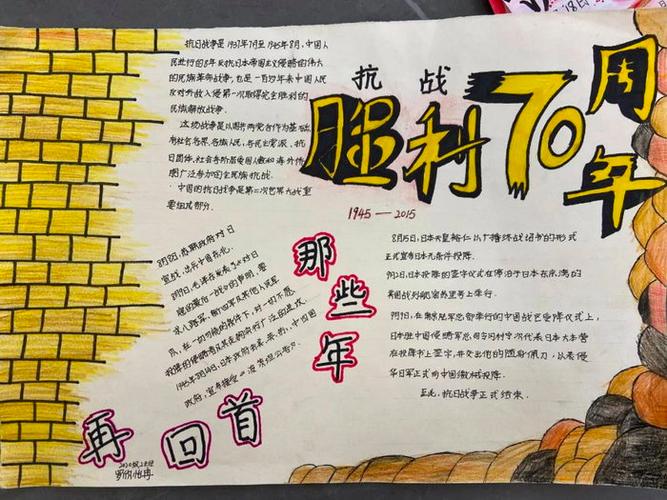 抗战
胜利70周年
1945—2015
抗日战争是1937年7月至1945年8月,中国人
民进行的8年反抗日本帝国主义侵略的伟大
的民族革命战争,也是一百多年来中国人民
反对外敌入侵第一次取得完全胜利的
民族解放战争。
这场战争是以国共两党合作为基础,
有社会各界、各族人民、各民主党派、抗
日团体、社会各阶层爱国人士和海外侨
胞广泛参加的全民族抗战。
中国的抗日战争是第二次世界大战重
要组成部分。
那些年
再回首
8月8日,苏联政府对日
宣战,出兵中国东北。
8月9日,毛泽东发表了《对日
寇的最后一战》的声明,要
求八路军、新四军及其他人民军
队,在一切可能条件下,对一切不愿
投降的侵略者及其走狗实行广泛的进攻。
1945年8月14日,日本政府照会美、英、苏、中四国
政府,宣布接受《波茨坦公告》。
8月15日,日本天皇裕仁以广播终战诏书的形式
正式宣布日本无条件投降。
9月2日,日本投降的签字仪式在停泊于日本东京湾的
美国战列舰密苏里号上举行。
9月9日,在南京陆军总部举行的中国战区受降仪式上,
日本驻中国侵略军总司令冈村宁次代表日本大本营
在投降书上签字,并交出他的随身佩刀,以表示侵
华日军正式向中国缴械投降。
至此,抗日战争正式结束。